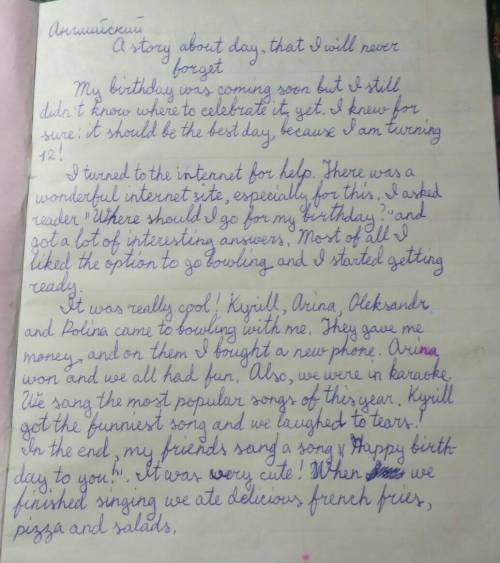 Английский
A story about day, that I will never
forget
My birthday was coming soon but I still
didn't know where to celebrate it yet. I knew for
sure: it should be the best day, because I am turning
12!
I turned to the internet for help. There was a
wonderful internet site, especially for this. I asked
reader "Where should I go for my birthday?" and
got a lot of interesting answers. Most of all I
liked the option to go bowling and I started getting
ready.
It was really cool! Kyrill, Arina, Oleksandr
and Polina came to bowling with me. They gave me
money, and on them I bought a new phone. Arina
won and we all had fun. Also, we were in karaoke
We sang the most popular songs of this year. Kyrill
got the funniest song and we laughed to tears!
In the end, my friends sang a song "Happy birth-
day to you!". It was very cute! When we
finished singing we ate delicious french fries,
pizza and salads.